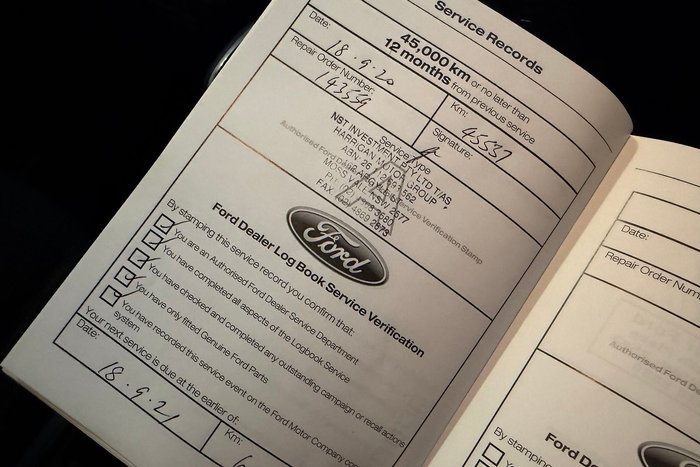 Service Records
45,000 km or no later than
12 months from previous service
Date:
18.9.20
Km:
45537
Repair Order Number:
143559
Signature:
Service Type
A
NST INVESTMENT PTY LTD T/AS
HARRIGAN MOTOR GROUP
ABN 26
MOSS VALE NSW 2577
FAX (02) 4869 2873
Authorised Ford Dealer Service Verification Stamp
Ford
Ford Dealer Log Book Service Verification
By stamping this service record you confirm that:
You are an Authorised Ford Dealer Service Department
You have completed all aspects of the Logbook Service
You have checked and completed any outstanding campaign or recall actions
You have only fitted Genuine Ford Parts
You have recorded this service event on the Ford Motor Company
system
Your next service is due at the earlier of:
Date:
18.9.21
Km:
Date:
Repair Order Num
Authorised Ford De
Ford De
By stamping
You